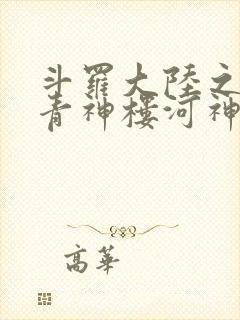 斗羅大陸之
青神樓河神
高華